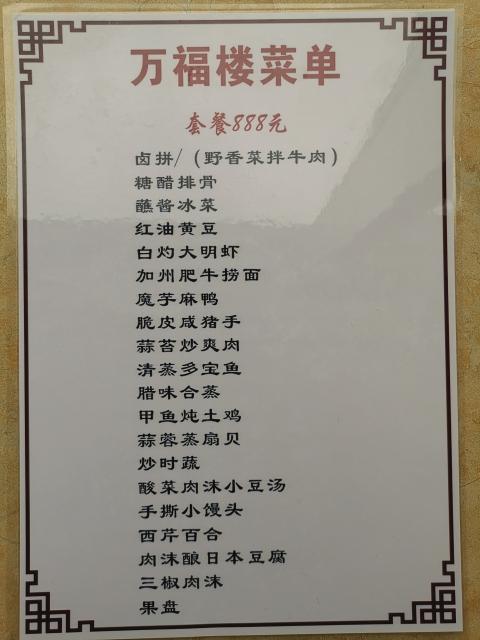 万福楼菜单
套餐888元
卤拼/（野香菜拌牛肉）
糖醋排骨
蘸酱冰菜
红油黄豆
白灼大明虾
加州肥牛捞面
魔芋麻鸭
脆皮咸猪手
蒜苔炒爽肉
清蒸多宝鱼
腊味合蒸
甲鱼炖土鸡
蒜蓉蒸扇贝
炒时蔬
酸菜肉沫小豆汤
手撕小馒头
西芹百合
肉沫酿日本豆腐
三椒肉沫
果盘